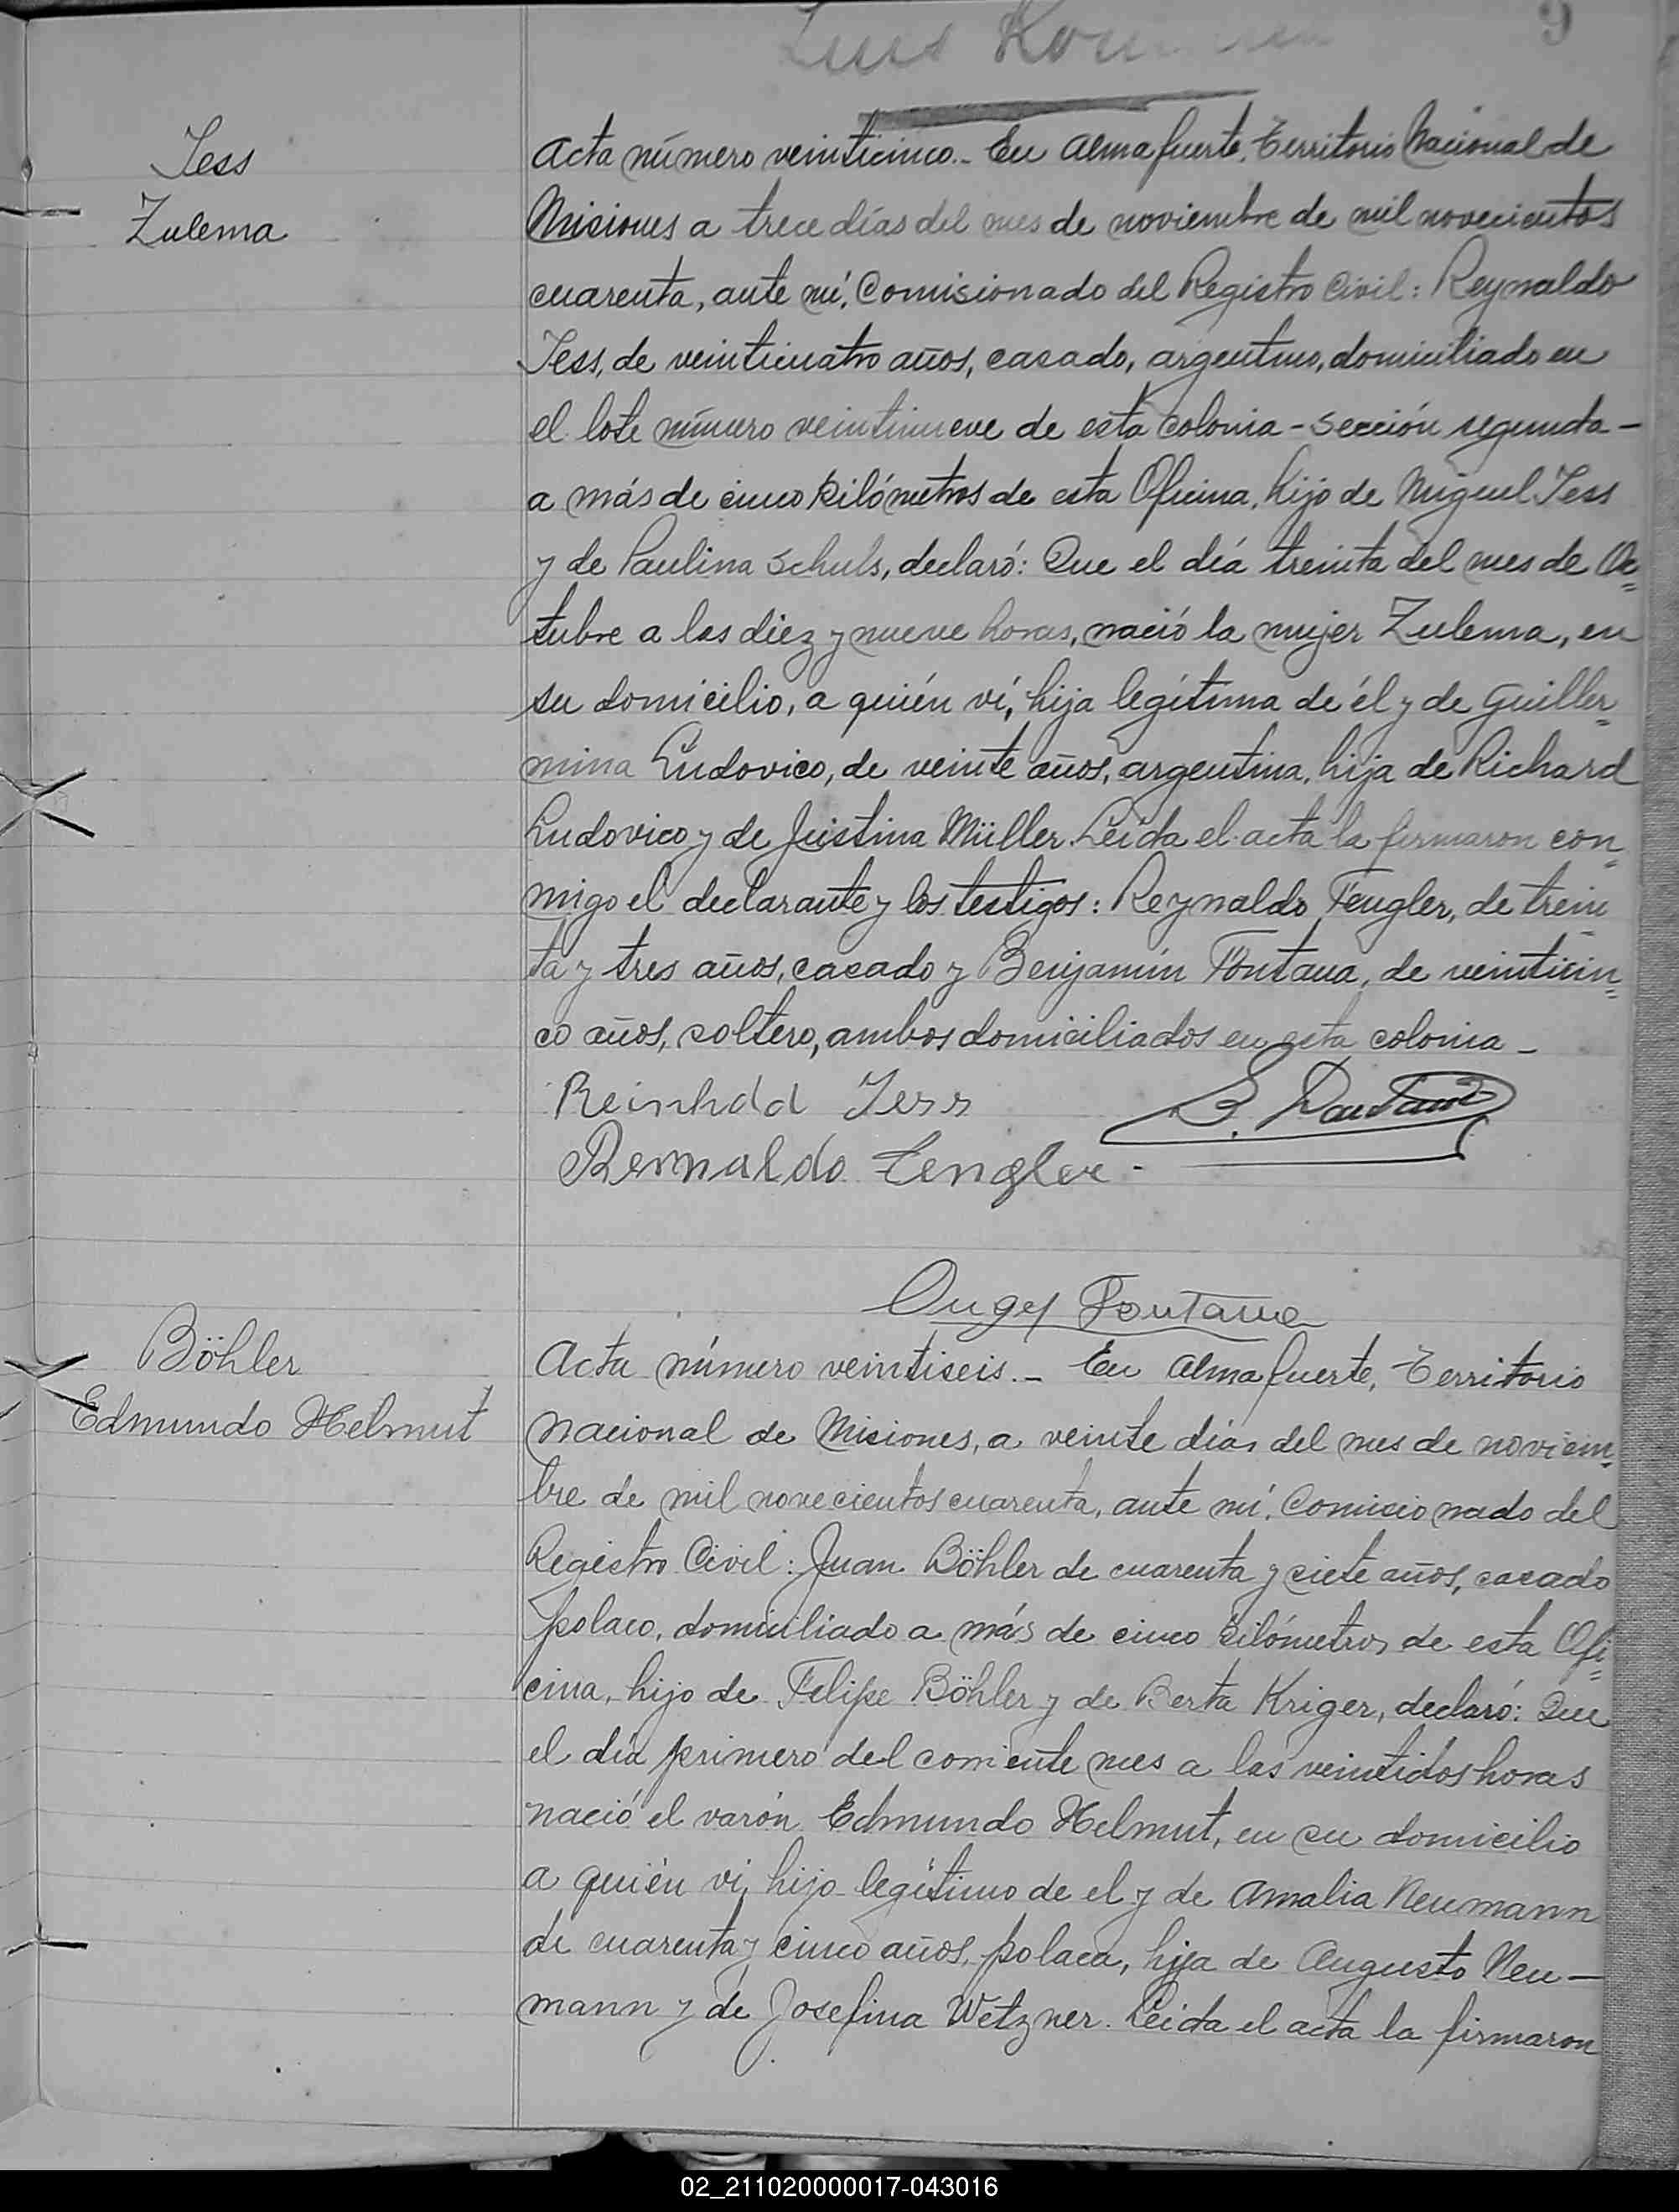 Luis
9
Jess
Zulema
Acta número veinticinco.- En Almafuerte, Territorio Nacional de
Misiones a trece días del mes de noviembre de mil novecientos
cuarenta, ante mí, Comisionado del Registro Civil: Reynaldo
Jess, de veinticuatro años, casado, argentino, domiciliado en
el lote número veintinueve de esta colonia - sección segunda -
a más de cinco kilómetros de esta Oficina, hijo de Miguel Jess
y de Paulina Schuls, declaró: Que el día treinta del mes de Oc=
tubre a las diez y nueve horas, nació la mujer Zulema, en
su domicilio, a quién ví, hija legítima de él y de Guiller=
mina Ludovico, de veinte años, argentina, hija de Richard
Ludovico y de Justina Müller. Leída el acta la firmaron con=
migo el declarante y los testigos: Reynaldo Fengler, de trein=
ta y tres años, casado y Benjamín Fontana, de veinticin=
co años, soltero, ambos domiciliados en esta colonia -
Reinhdd Jess
B. Fontana
Reynaldo Fengler -
Angel Fontana
Böhler
Edmundo Helmut
Acta número veintiseis.- En Almafuerte, Territorio
nacional de Misiones, a veinte días del mes de noviem=
bre de mil novecientos cuarenta, ante mí, Comisionado del
Registro Civil: Juan Böhler de cuarenta y siete años, casado
polaco, domiciliado a más de cinco kilómetros de esta Ofi=
cina, hijo de Felipe Böhler y de Berta Kriger, declaró: Que
el día primero del corriente mes a las veintidos horas
nació el varón Edmundo Helmut, en su domicilio
a quién ví, hijo legítimo de el y de Amalia Neumann
de cuarenta y cinco años, polaca, hija de Augusto Neu-
mann y de Josefina Wetzner. Leída el acta la firmaron
02_211020000017-043016